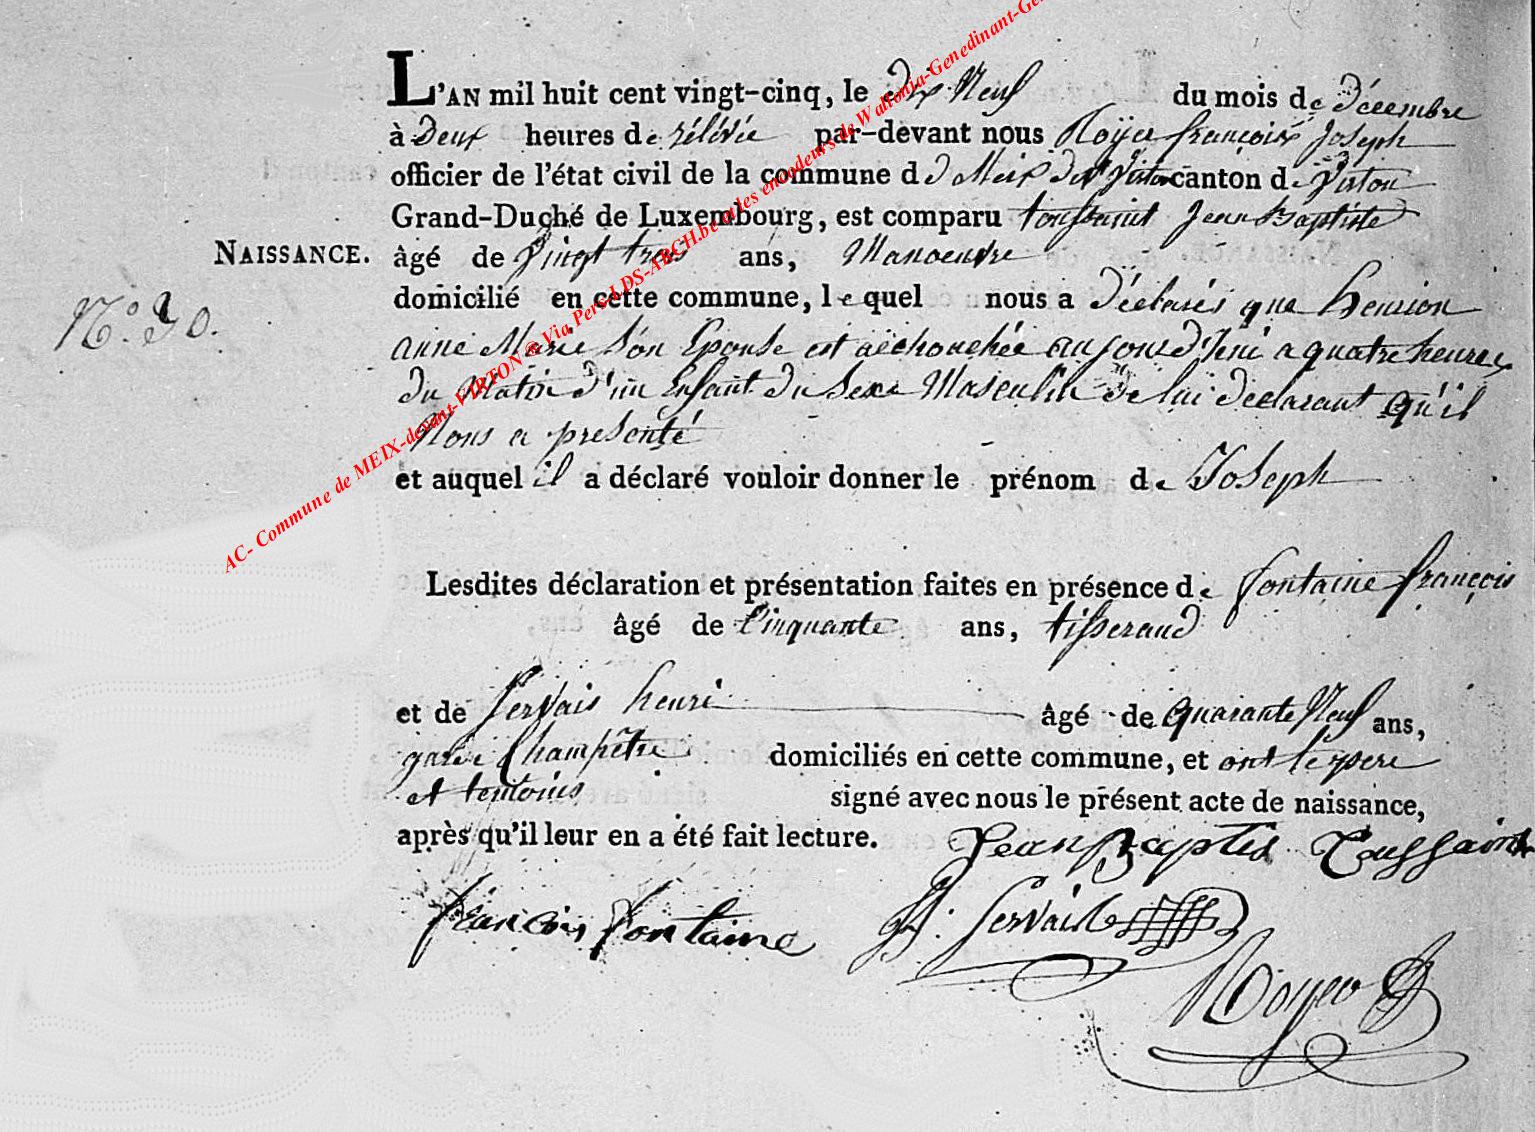 L'AN mil huit cent vingt-cinq, le dix Neuf du mois de décembre
à Deux heures de rélévée par-devant nous Royer françois Joseph
officier de l'état civil de la commune d d Meix det Virton canton de Virton
Grand-Duché de Luxembourg, est comparu toussaint Jean Baptiste
NAISSANCE. âgé de Vingt trois ans, Manoeuvre
domicilié en cette commune, lequel nous a déclarés que henrion
N.° 30.
anne Marie Son Epouse est acchouchée aujourd'hui a quatre heures
du Matin d'un Enfant du Sexe Masculin de lui declarant qu'il
Nous a presenté
et auquel il a déclaré vouloir donner le prénom de Joseph
Lesdites déclaration et présentation faites en présence de fontaine françois
âgé de Cinquante ans, tisserand
et de Servais henri âgé de quarante Neuf ans,
garde Champêtre domiciliés en cette commune, et ont le pere
et temoins signé avec nous le présent acte de naissance,
après qu'il leur en a été fait lecture. Jean Baptis Toussaint
francois fontaine H. Servais
Royer
AC- Commune de MEIX-devant-VIRTON ® Via Pers-LDS-ARCH.be et les encodeurs de Wallonia-Genedinant-Ge